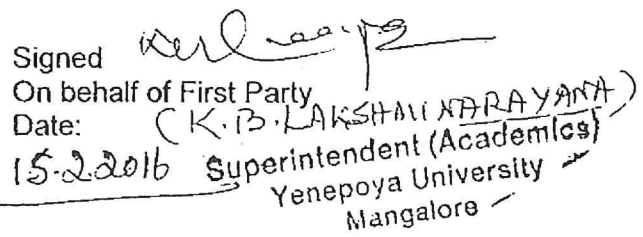 Signed
On behalf of First Party
Date: (K.B. LAKSHMINARAYANA)
15.2.2016 Superintendent (Academics)
Yenepoya University
Mangalore